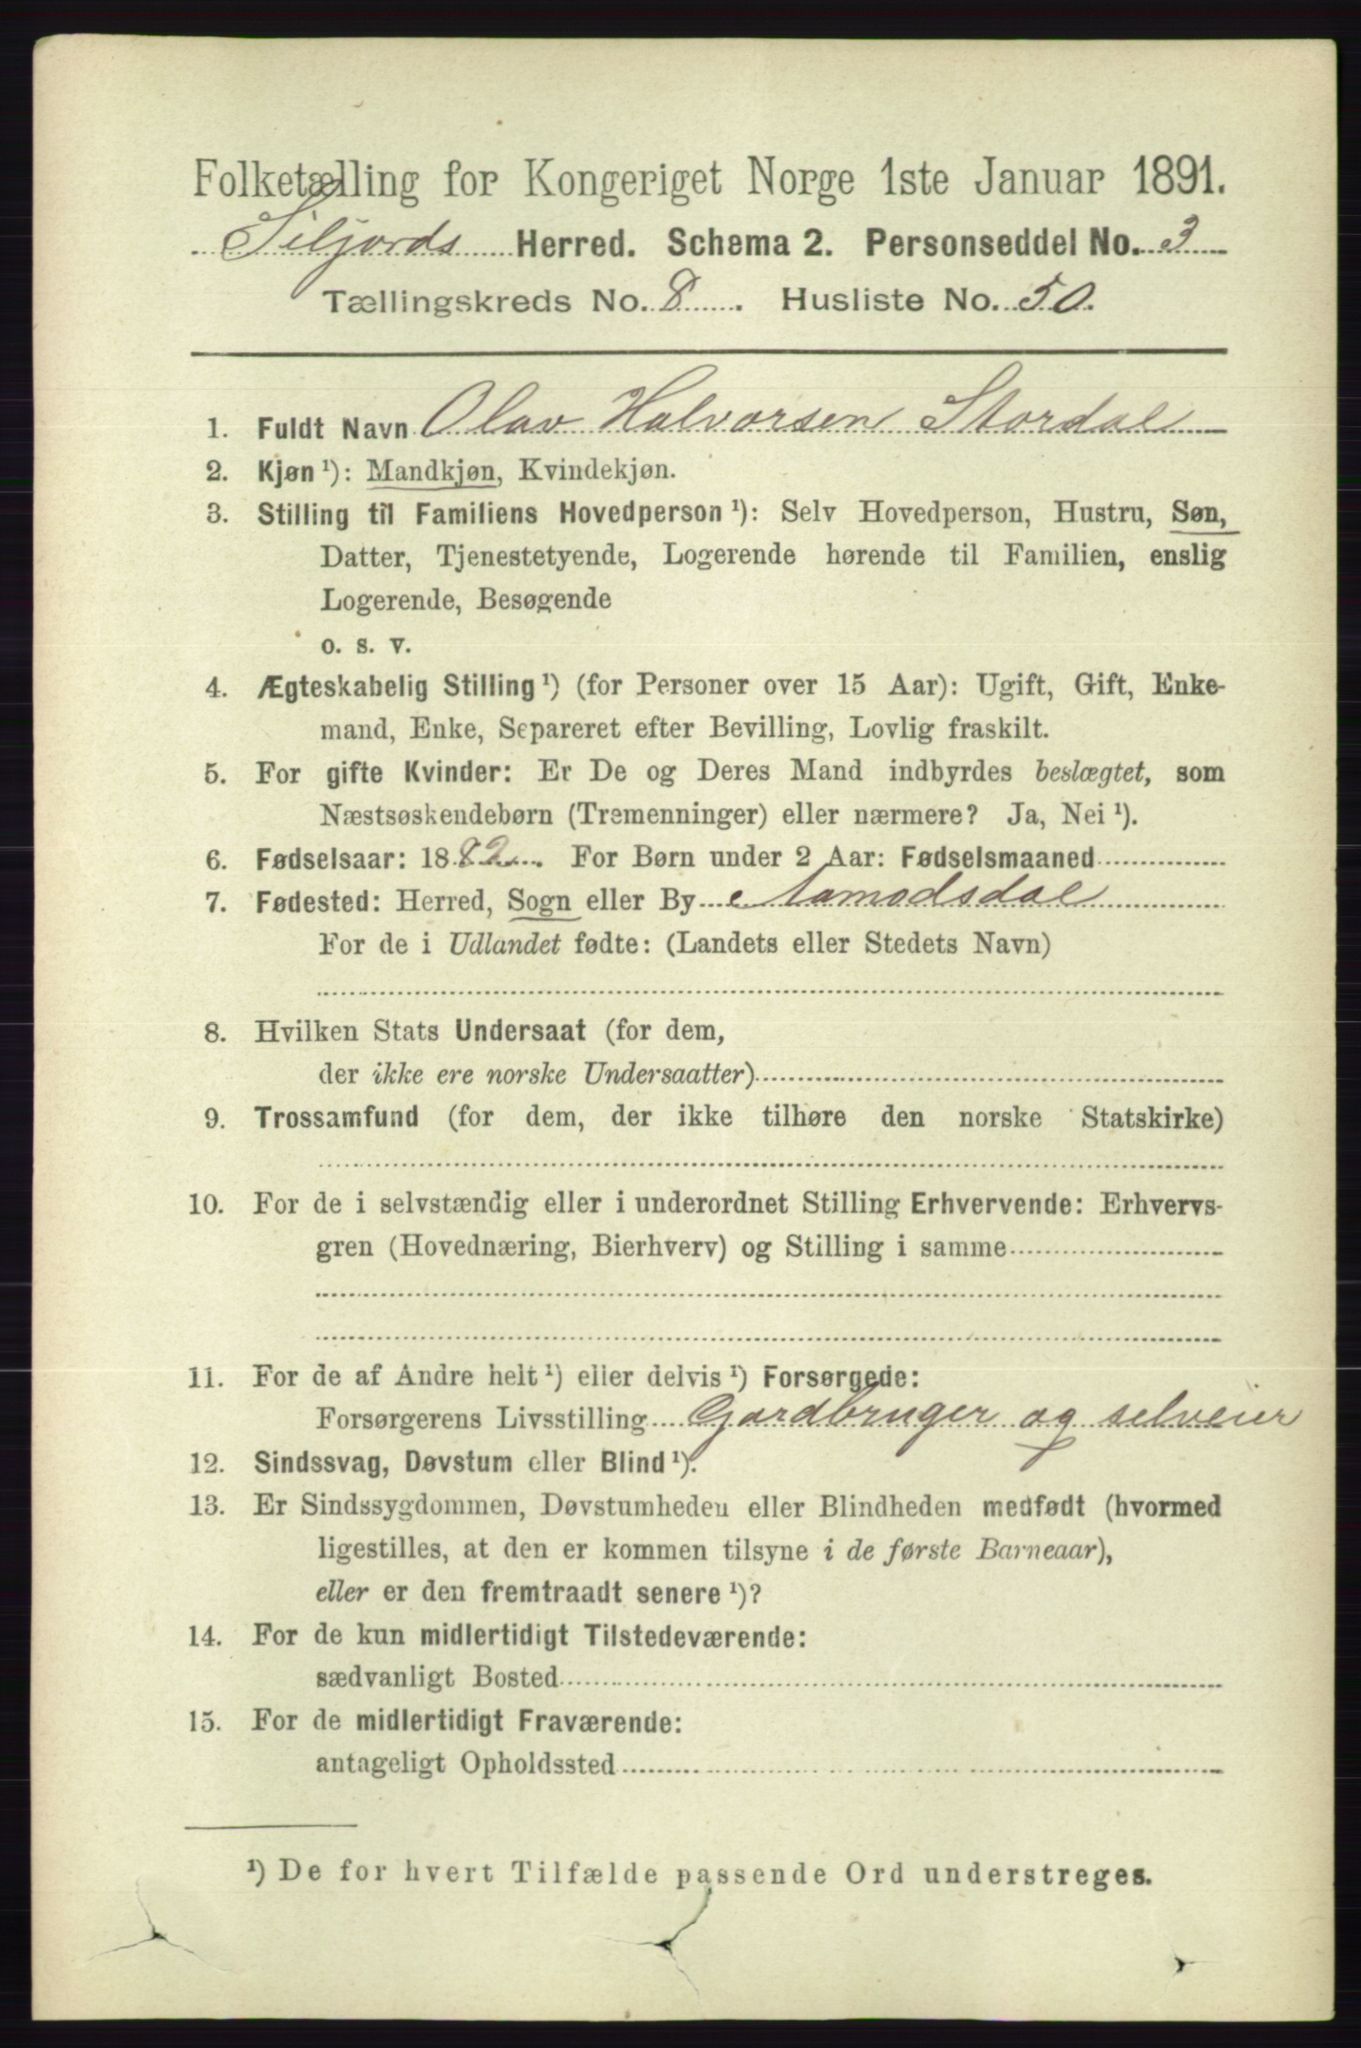 Folketælling for Kongeriget Norge 1ste Januar 1891.
Siljords Herred. Schema 2. Personseddel No. 3
Tællingskreds No. 8. Husliste No. 50.
1. Fuldt Navn Olav Halvorsen Stordal
2. Kjøn ¹): Mandkjøn, Kvindekjøn.
3. Stilling til Familiens Hovedperson ¹): Selv Hovedperson, Hustru, Søn,
Datter, Tjenestetyende, Logerende hørende til Familien, enslig
Logerende, Besøgende
o. s. v.
4. Ægteskabelig Stilling ¹) (for Personer over 15 Aar): Ugift, Gift, Enke-
mand, Enke, Separeret efter Bevilling, Lovlig fraskilt.
5. For gifte Kvinder: Er De og Deres Mand indbyrdes beslægtet, som
Næstsøskendebørn (Tremenninger) eller nærmere? Ja, Nei ¹).
6. Fødselsaar: 1882. For Børn under 2 Aar: Fødselsmaaned
7. Fødested: Herred, Sogn eller By Aamodsdal
For de i Udlandet fødte: (Landets eller Stedets Navn)
8. Hvilken Stats Undersaat (for dem,
der ikke ere norske Undersaatter)
9. Trossamfund (for dem, der ikke tilhøre den norske Statskirke)
10. For de i selvstændig eller i underordnet Stilling Erhvervende: Erhvervs-
gren (Hovednæring, Bierhverv) og Stilling i samme
11. For de af Andre helt ¹) eller delvis ¹) Forsørgede:
Forsørgerens Livsstilling Gardbruger og selveier
12. Sindssvag, Døvstum eller Blind ¹).
13. Er Sindssygdommen, Døvstumheden eller Blindheden medfødt (hvormed
ligestilles, at den er kommen tilsyne i de første Barneaar),
eller er den fremtraadt senere ¹)?
14. For de kun midlertidigt Tilstedeværende:
sædvanligt Bosted
15. For de midlertidigt Fraværende:
antageligt Opholdssted
¹) De for hvert Tilfælde passende Ord understreges.